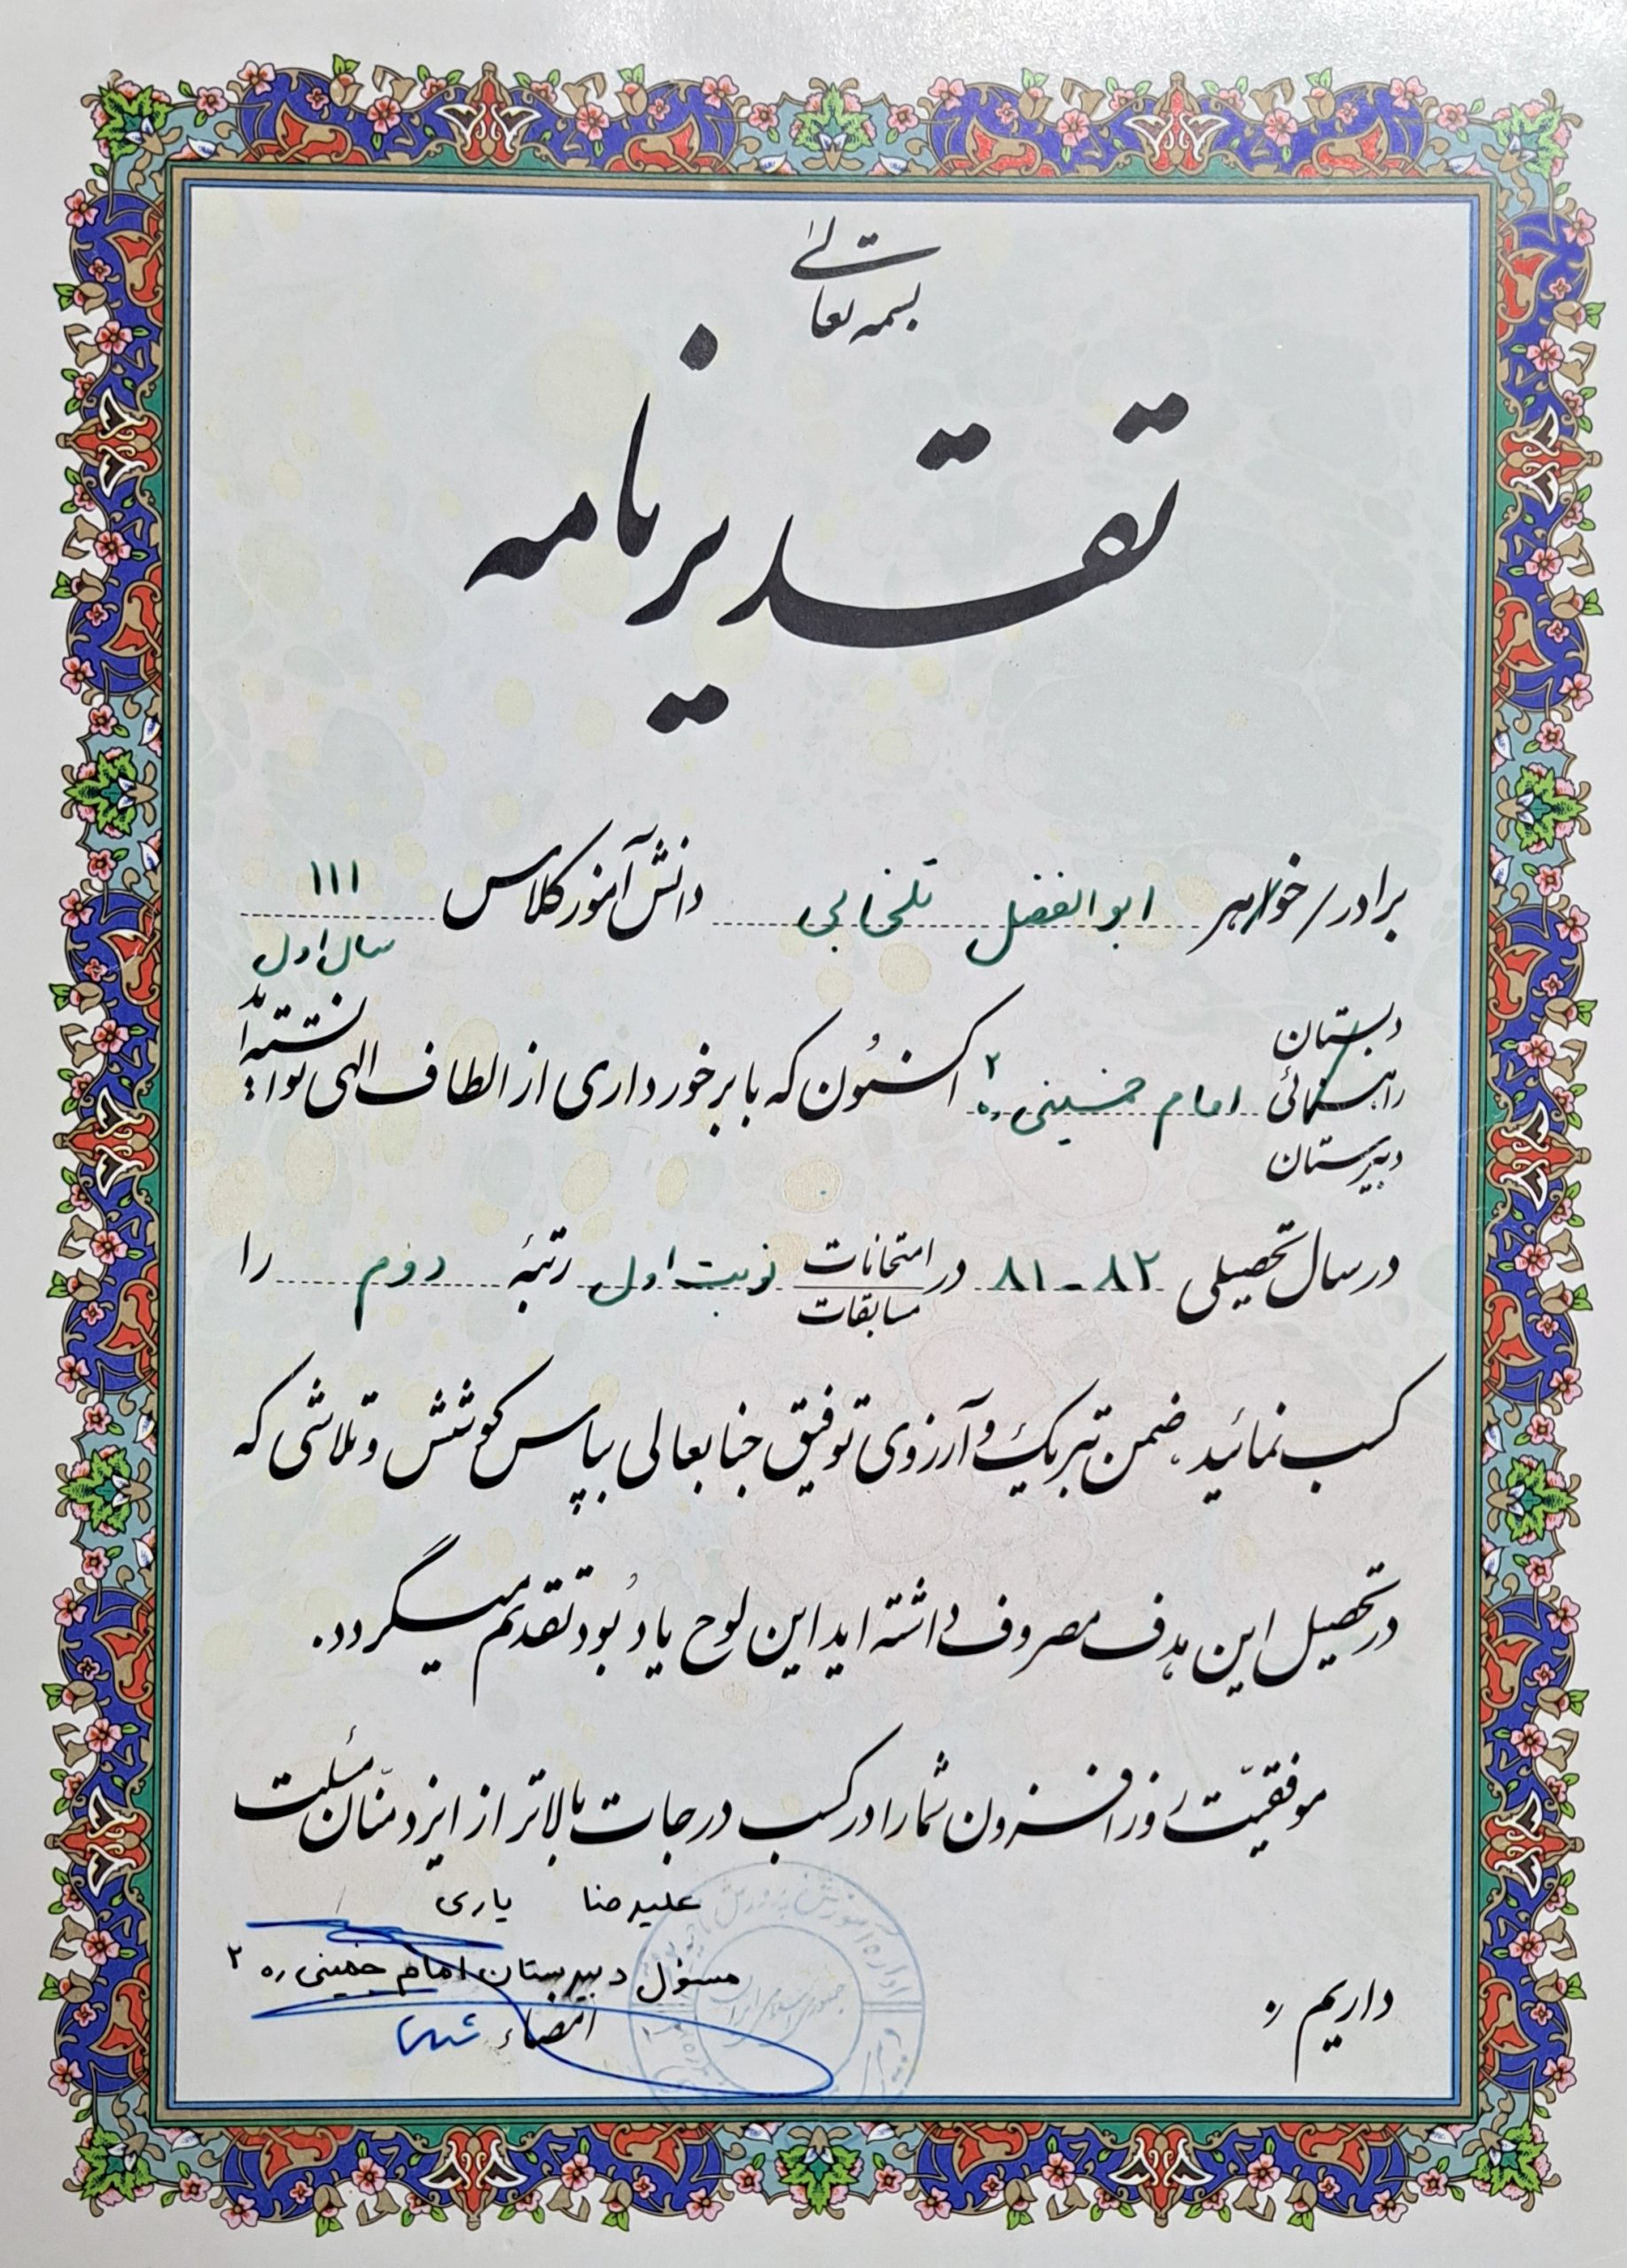 بسمه تعالی
تقدیرنامه
برادر/خواهر ابوالفضل تلخابی دانش آموز کلاس ۱۱۱
سال اول
دبستان
راهنمائی امام خمینی ره ۲ اکنون که با برخورداری از الطاف الهی توانسته اید
دبیرستان
در سال تحصیلی ۸۲-۸۱ در امتحانات نوبت اول رتبهٔ دوم را
مسابقات
کسب نمائید، ضمن تبریک و آرزوی توفیق جنابعالی بپاس کوشش و تلاشی که
در تحصیل این هدف مصروف داشته اید این لوح یادبود تقدیم میگردد.
موفقیّت روزافزون شما را در کسب درجات بالاتر از ایزد منّان مسئلت
داریم
علیرضا یاری
مسئول دبیرستان امام خمینی ره ۲
امضاء
اداره آموزش و پرورش
جمهوری اسلامی ایران